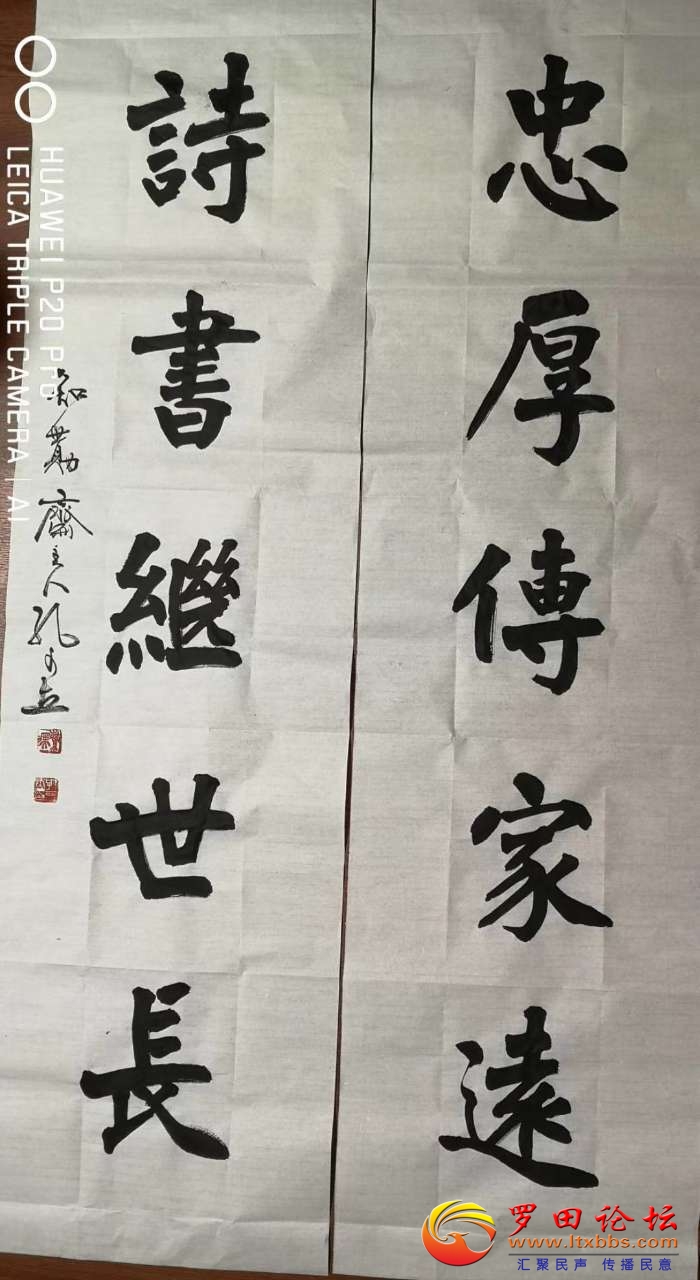 忠厚傳家遠
詩書繼世長
HUAWEI P20 PRO
LEICA TRIPLE CAMERA | AI
罗田论坛
www.ltxbbs.com
汇聚民声 传播民意